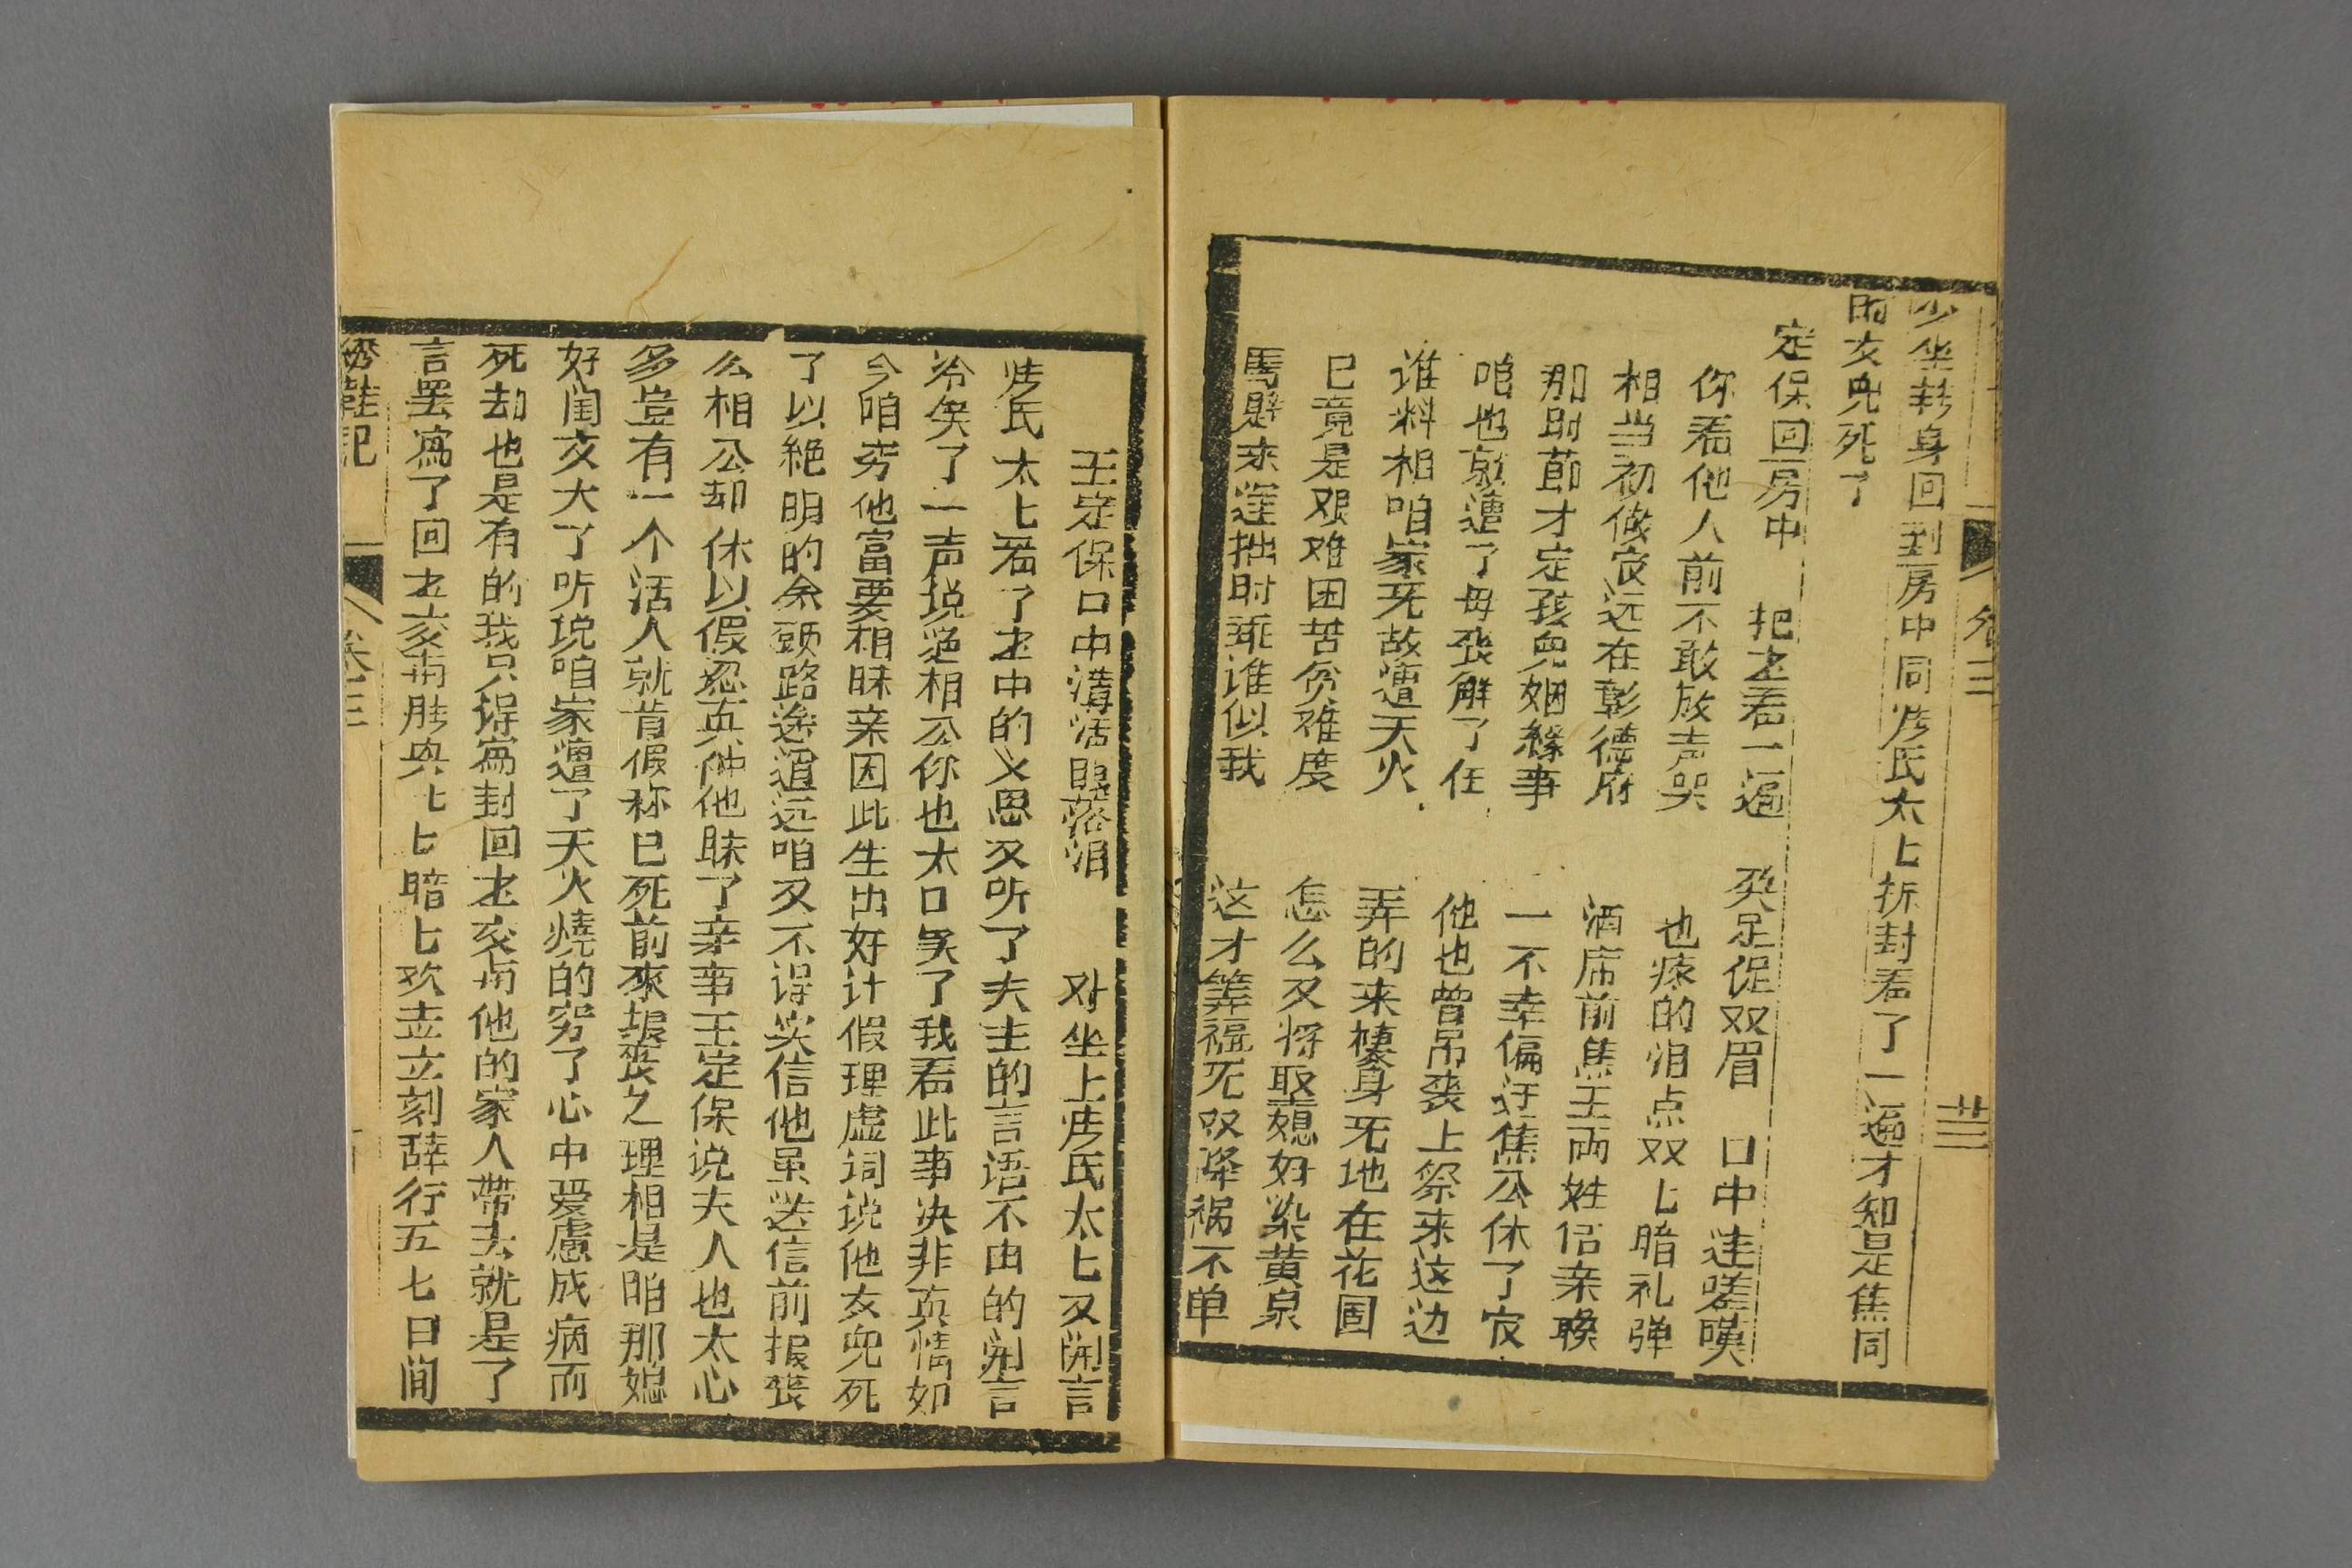 卷三
卅三
少坐转身回到房中同庞氏太匕折封看了一遍才知是焦同
的女児死了
定保回房中 把书看一遍 跌足促双眉 口中連嗟嘆
你看他人前不敢放声哭 也疼的泪点双匕暗礼弹
相当初做官远在彰德府 酒席前焦王両姓侣亲联
那时節才定孩児姻緣事 一不幸偏迂焦公休了官
咱也就遭了母丧觧了任 他也曾吊丧上祭来这边
谁料相咱家旡故遭天火 弄的来棲身旡地在花園
已竟是艰难困苦贫难度 怎么又将取媳好染黄泉
馬尉来運拙时乖谁似我 这才筭福旡双降祸不单
王定保口中溝活眼落泪 对坐上庞氏太匕又開言
庞氏太匕看了书中的义思又听了夫主的言语不由的開言
冷矣了一声说道相公你也太口吴了我看此事决非真情如
今咱穷他富要相昧亲因此生出好计假理虚词说他女児死
了以絶明的余頭路途遥远咱又不得实信他虽送信前报丧
么相公却休以假忍真仲他昧了亲事王定保说夫人也太心
多豈有一个活人就肯假称已死前來报丧之理相是咱那媳
好闺女大了听说咱家遭了天火燒的穷了心中爱慮成病而
死却也是有的我只得寫封回书交与他的家人带去就是了
言罢寫了回书交与胜典匕匕暗匕欢壵立刻辞行五七日间
綉鞋記
卷三